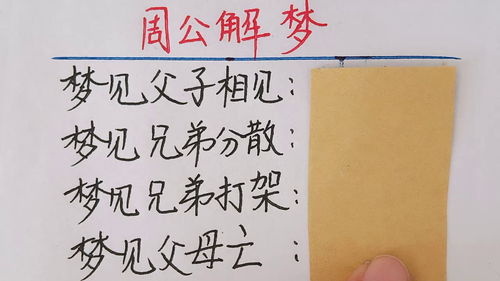 周公解梦
梦见父子相见：
梦见兄弟分散：
梦见兄弟打架：
梦见父母亡：